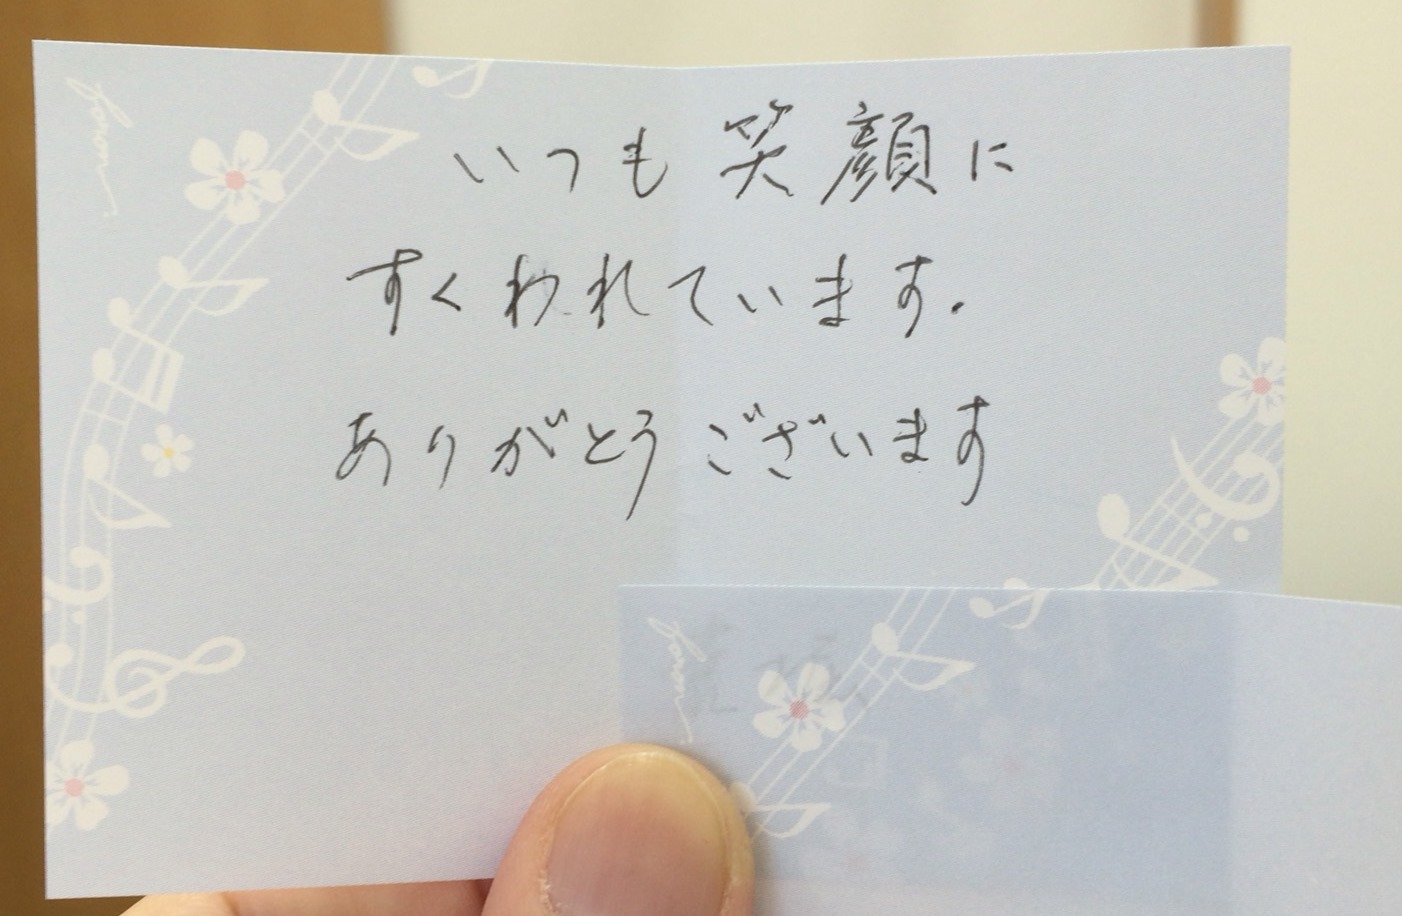 いつも笑顔に
すくわれています.
ありがとうございます